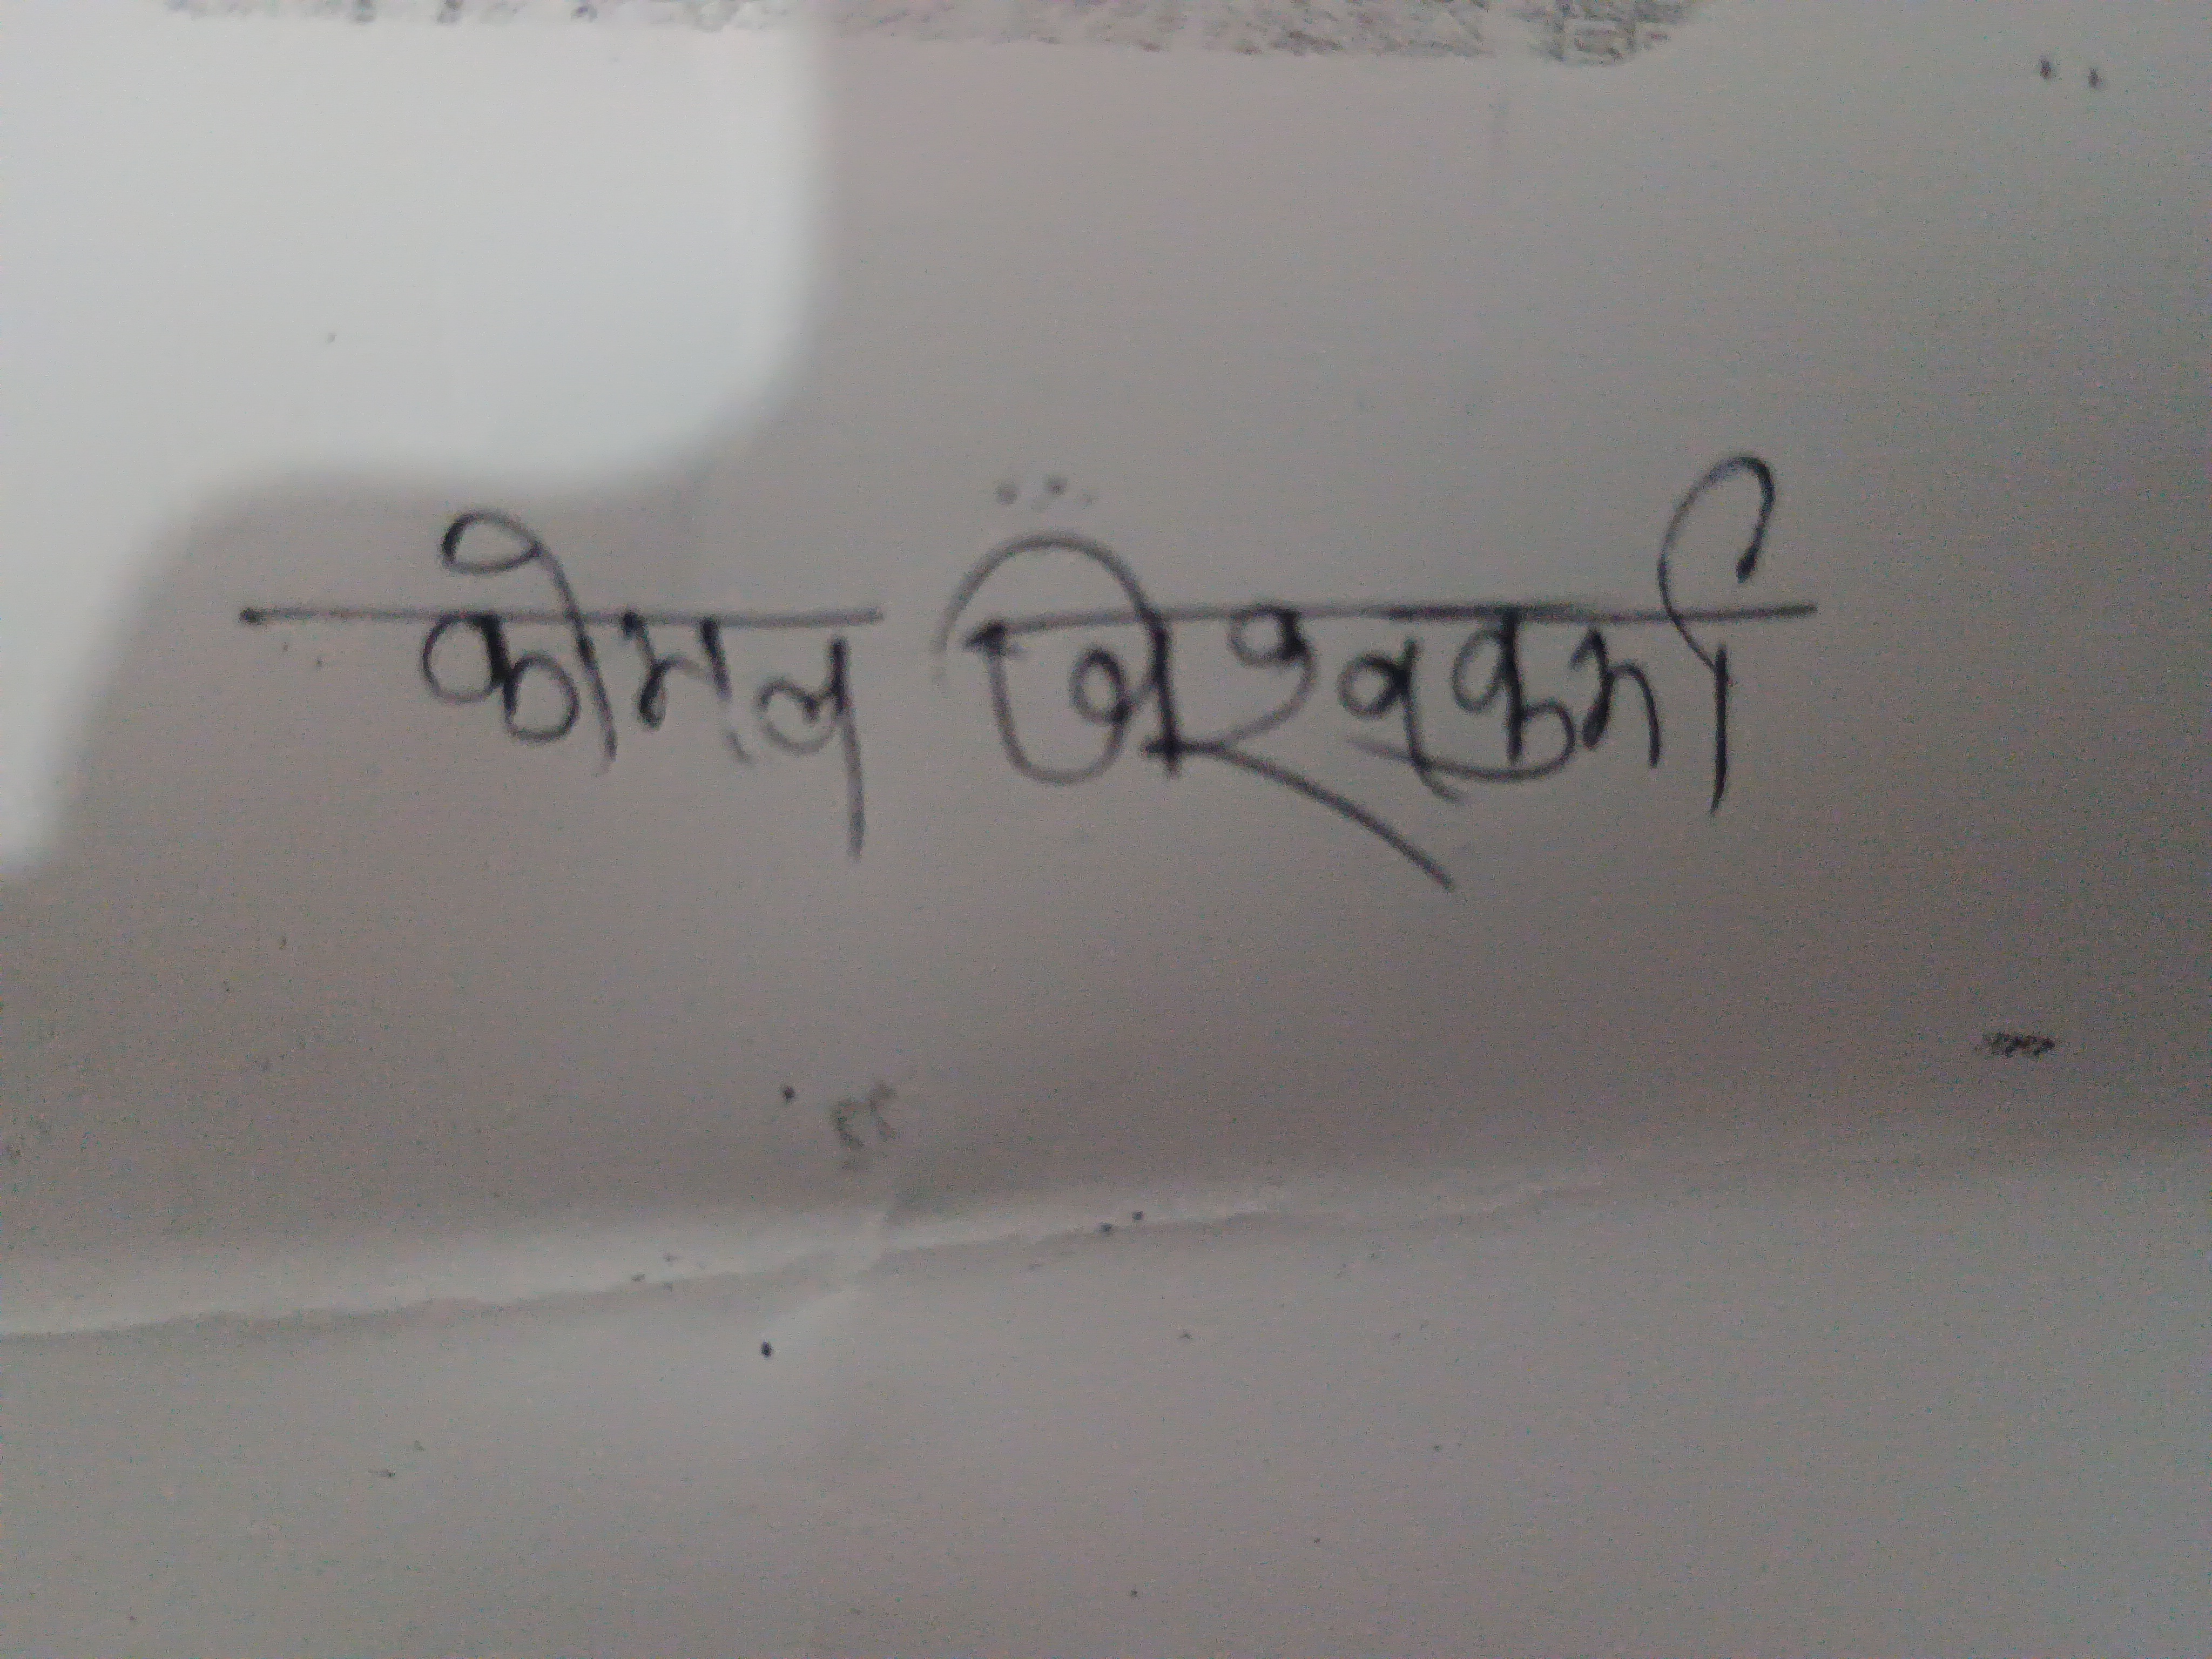 कोमल विश्वकर्मा